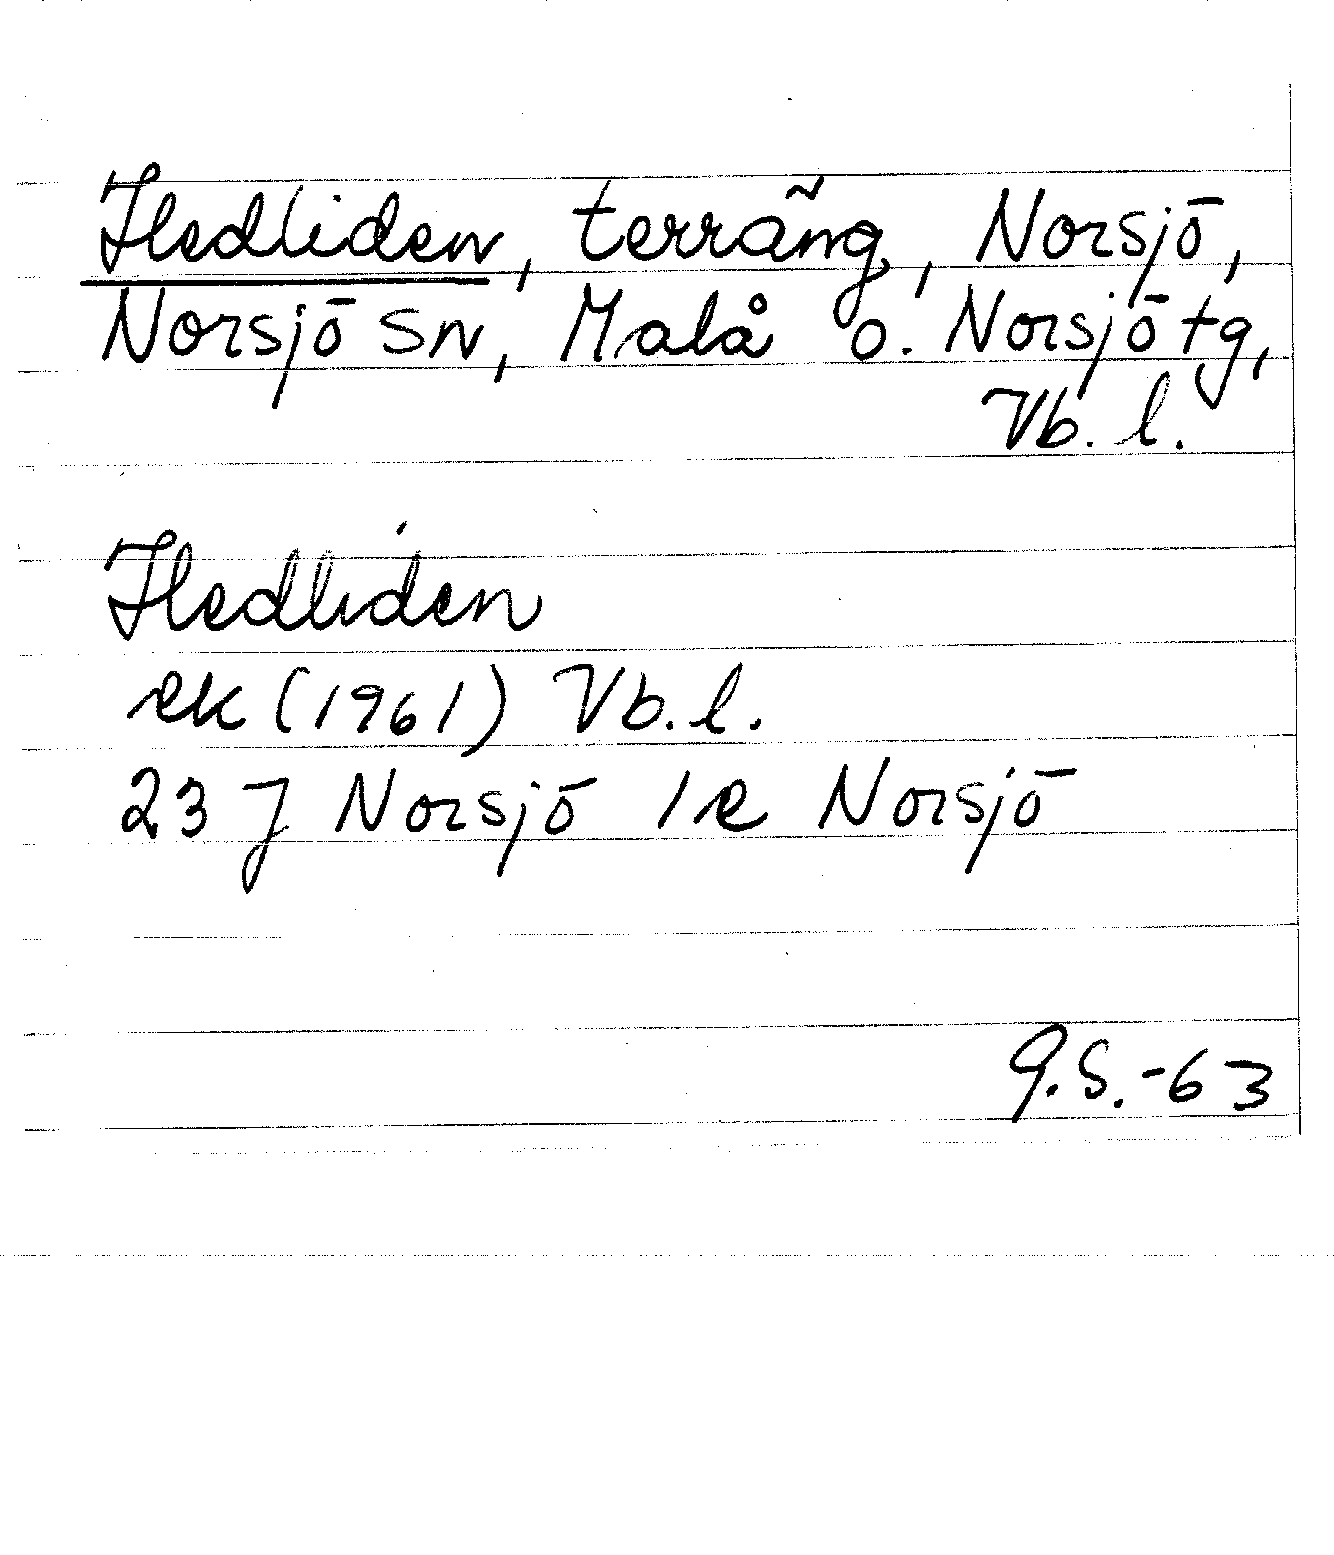 Hedliden, terräng, Norsjö,
Norsjö sn, Malå o. Norsjö tg,
Vb. l.
Hedliden
ek (1961) Vb. l.
23 J Norsjö 1 e Norsjö
G.S.-63